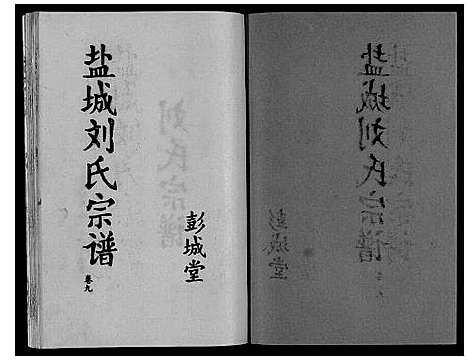 盐城刘氏宗谱
卷九
彭城堂
盐城刘氏宗谱
彭城堂